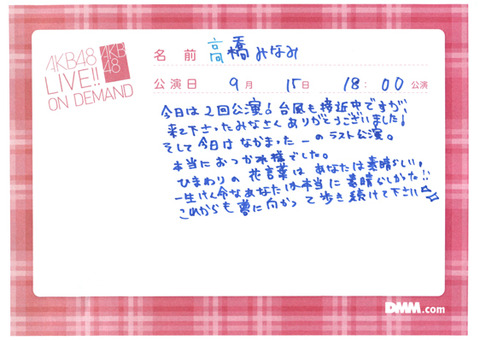 AKB48
LIVE!!
ON DEMAND
AKB
48
名 前 高橋みなみ
公演日 9月 15日 18:00公演
今日は2回公演♪台風も接近中ですが、
来て下さったみなさくありがとうございました!
そして今日はなかまったーのラスト公演。
本当におつかれ様でした。
ひまわりの花言葉はあなたは素晴らしい。
一生けん命なあなたは本当に素晴らしかった!!
これからも夢に向かって歩き続けて下さい☆
DMM.com